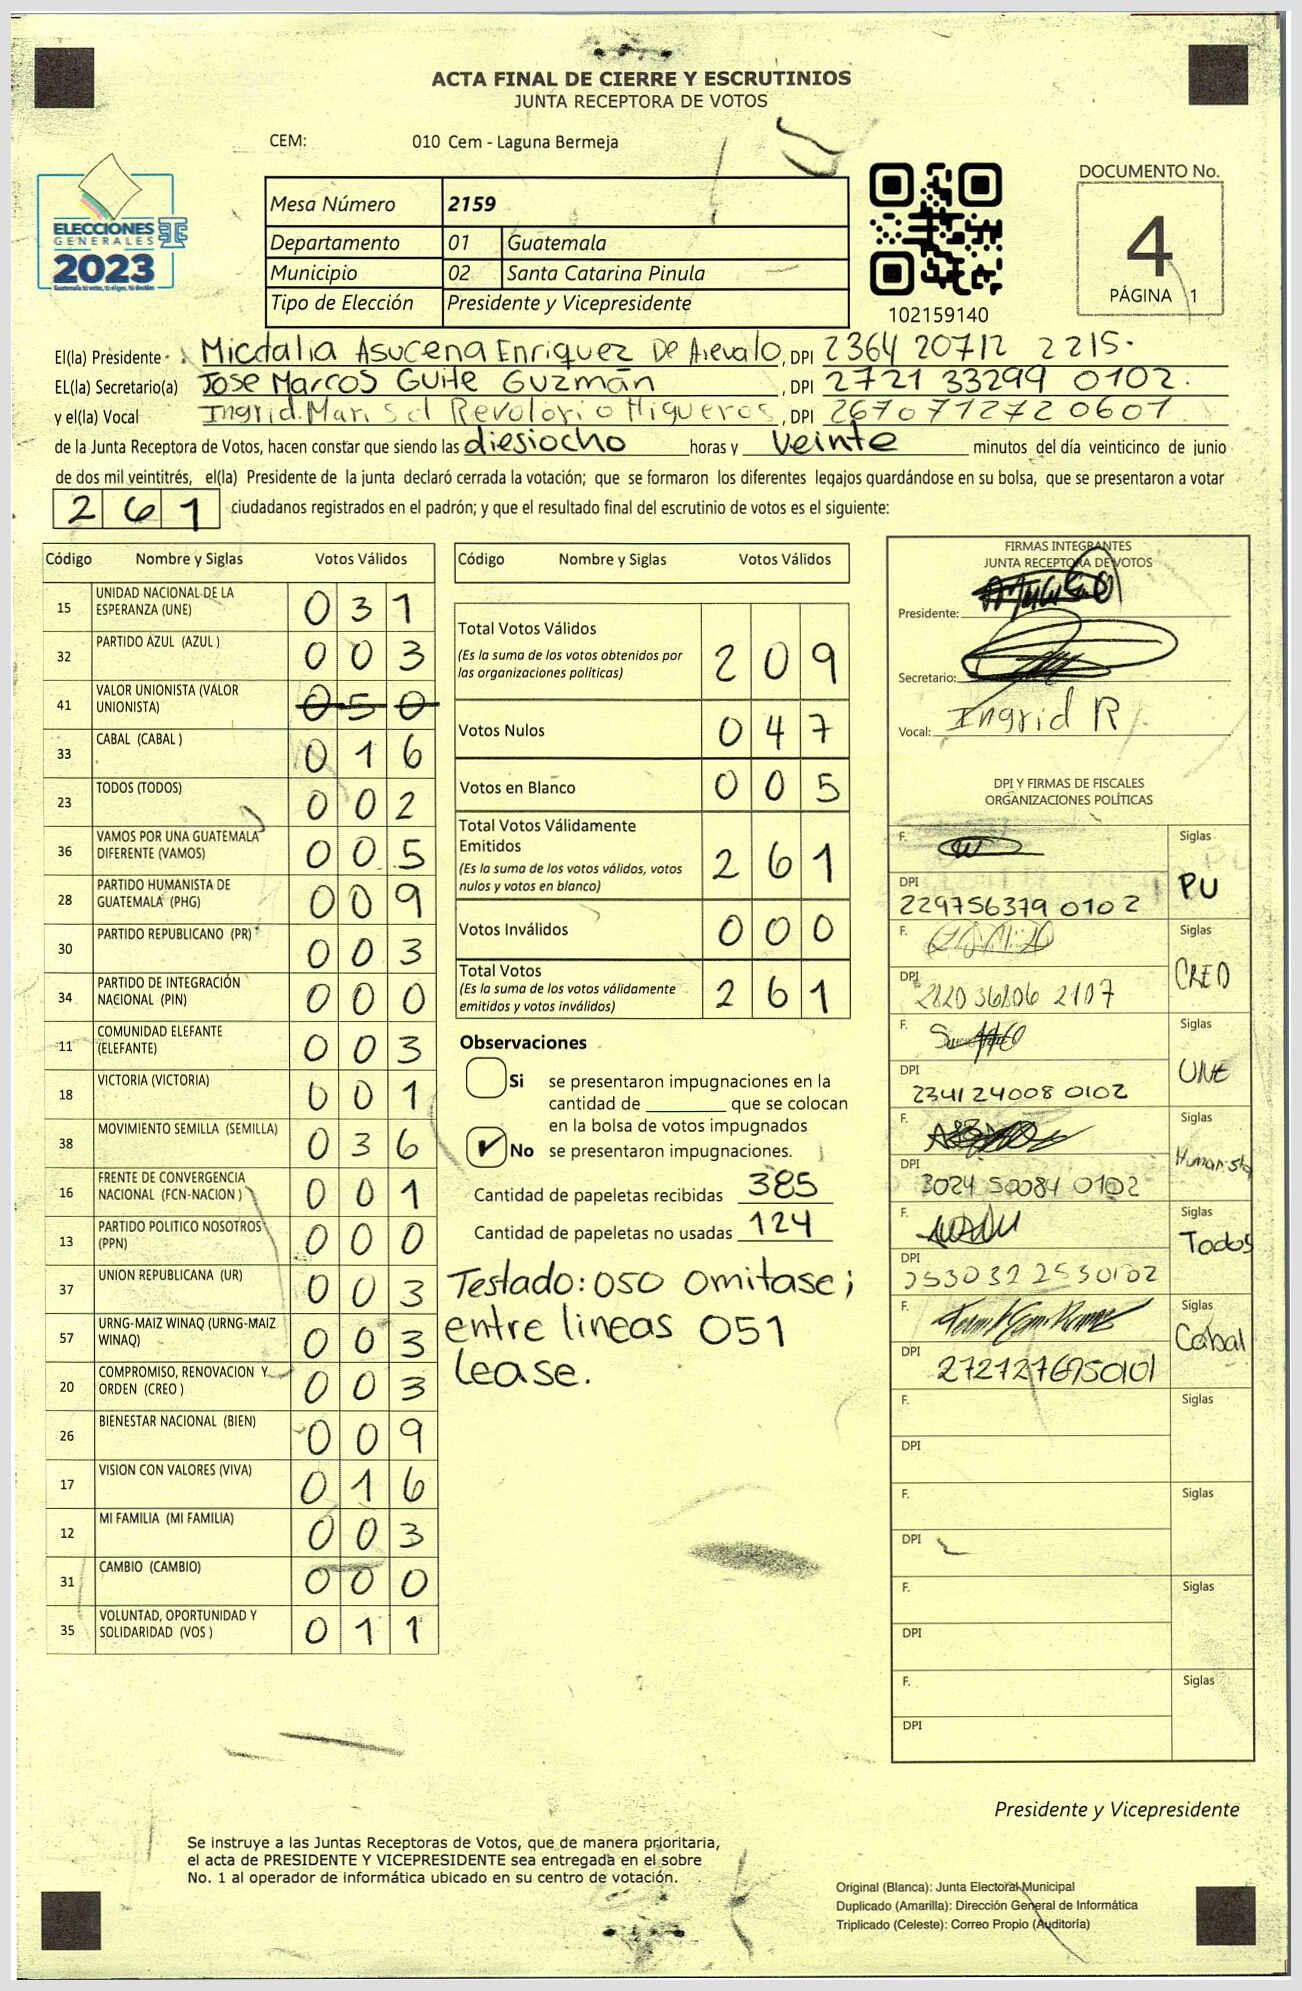 ACTA FINAL DE CIERRE Y ESCRUTINIOS
JUNTA RECEPTORA DE VOTOS
CEM: 010 Cem - Laguna Bermeja
ELECCIONES
GENERALES
2023
Mesa Número 2159
Departamento 01 Guatemala
Municipio 02 Santa Catarina Pinula
Tipo de Elección Presidente y Vicepresidente
102159140
DOCUMENTO No.
4
PÁGINA 1
El(la) Presidente Micdalia Asucena Enriquez De Arevalo, DPI 2364 20712 2215.
EL(la) Secretario(a) Jose Marcos Guite Guzmán, DPI 2721 33299 0102.
y el(la) Vocal Ingrid Marisol Revolorio Higueros, DPI 2670712720601
de la Junta Receptora de Votos, hacen constar que siendo las diesiocho horas y veinte minutos del día veinticinco de junio
de dos mil veintitrés, el(la) Presidente de la junta declaró cerrada la votación; que se formaron los diferentes legajos quardándose en su bolsa, que se presentaron a votar
261 ciudadanos registrados en el padrón; y que el resultado final del escrutinio de votos es el siguiente:
Código Nombre y Siglas Votos Válidos
15 UNIDAD NACIONAL DE LA ESPERANZA (UNE) 031
32 PARTIDO AZUL (AZUL ) 003
41 VALOR UNIONISTA (VALOR UNIONISTA) 050
33 CABAL (CABAL ) 016
23 TODOS (TODOS) 002
36 VAMOS POR UNA GUATEMALA DIFERENTE (VAMOS) 005
28 PARTIDO HUMANISTA DE GUATEMALA (PHG) 009
30 PARTIDO REPUBLICANO (PR) 003
34 PARTIDO DE INTEGRACIÓN NACIONAL (PIN) 000
11 COMUNIDAD ELEFANTE (ELEFANTE) 003
18 VICTORIA (VICTORIA) 001
38 MOVIMIENTO SEMILLA (SEMILLA) 036
16 FRENTE DE CONVERGENCIA NACIONAL (FCN-NACION ) 001
13 PARTIDO POLITICO NOSOTROS (PPN) 000
37 UNION REPUBLICANA (UR) 003
57 URNG-MAIZ WINAQ (URNG-MAIZ WINAQ) 003
20 COMPROMISO, RENOVACION Y ORDEN (CREO ) 003
26 BIENESTAR NACIONAL (BIEN) 009
17 VISION CON VALORES (VIVA) 016
12 MI FAMILIA (MI FAMILIA) 003
31 CAMBIO (CAMBIO) 000
35 VOLUNTAD, OPORTUNIDAD Y SOLIDARIDAD (VOS ) 011
Código Nombre y Siglas Votos Válidos
Total Votos Válidos 209
(Es la suma de los votos obtenidos por
las organizaciones politicas)
Votos Nulos 047
Votos en Blanco 005
Total Votos Válidamente
Emitidos 261
(Es la suma de los votos válidos, votos
nulos y votos en blanco)
Votos Inválidos 000
Total Votos 261
(Es la suma de los votos válidamente
emitidos y votos inválidos)
Observaciones
Si se presentaron impugnaciones en la
cantidad de ________ que se colocan
en la bolsa de votos impugnados
✔ No se presentaron impugnaciones.
Cantidad de papeletas recibidas 385
Cantidad de papeletas no usadas 124
Testado: 050 omitase;
entre lineas 051
Lease.
FIRMAS INTEGRANTES
JUNTA RECEPTORA DE VOTOS
Presidente:
Secretario:
Vocal: Ingrid R
DPI Y FIRMAS DE FISCALES
ORGANIZACIONES POLÍTICAS
F. Siglas
DPI 229756379 0102 PU
F. Siglas
DPI 2820 36806 2107 CREO
F. Siglas
DPI 2341 24008 0102 UNE
F. Siglas
DPI 3024 50084 0102 Humanista
F. Siglas
DPI Todos
F. Siglas
DPI Cabal
F. Siglas
DPI
F. Siglas
DPI
F. Siglas
DPI
F. Siglas
DPI
Presidente y Vicepresidente
Se instruye a las Juntas Receptoras de Votos, que de manera prioritaria,
el acta de PRESIDENTE Y VICEPRESIDENTE sea entregada en el sobre
No. 1 al operador de informática ubicado en su centro de votación.
Original (Blanca): Junta Electoral Municipal
Duplicado (Amarilla): Dirección General de Informática
Triplicado (Celeste): Correo Propio (Auditoría)